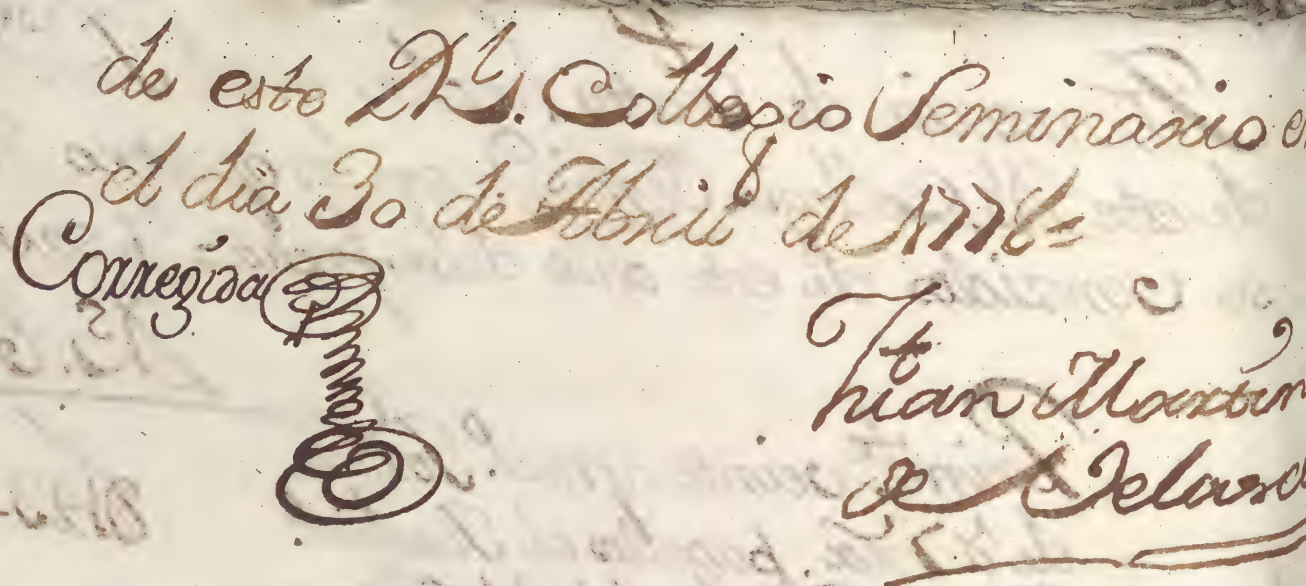 de este Rl. Collegio Seminario en
el dia 30 de Abril de 1778=
Corregida
Martin
de